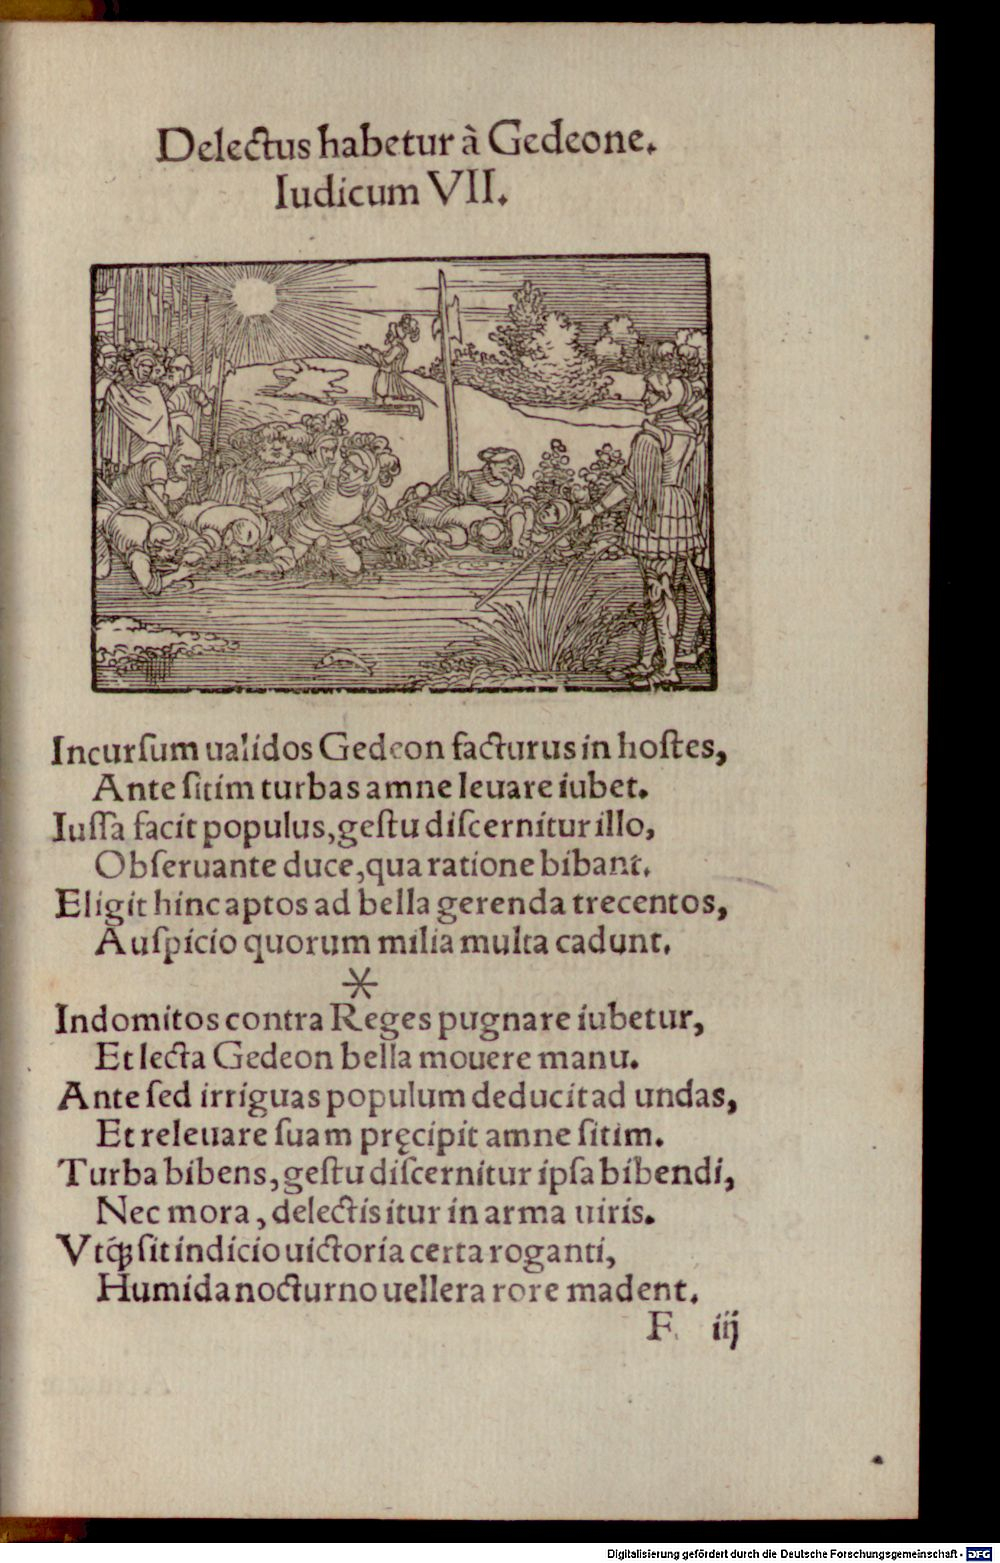 Delectus habetur à Gedeone.
Iudicum VII.
Incurſum ualidos Gedeon facturus in hoſtes,
Ante ſitim turbas amne leuare iubet.
Iuſſa facit populus, geſtu diſcernitur illo,
Obſeruante duce, qua ratione bibant.
Eligit hinc aptos ad bella gerenda trecentos,
Auſpicio quorum milia multa cadunt.
*
Indomitos contra Reges pugnare iubetur,
Et lecta Gedeon bella mouere manu.
Ante ſed irriguas populum deducit ad undas,
Et releuare ſuam pręcipit amne ſitim.
Turba bibens, geſtu diſcernitur ipſa bibendi,
Nec mora, delectis itur in arma uiris.
Vtq́ꝫ ſit indicio uictoria certa roganti,
Humida nocturno uellera rore madent.
F iij
Digitalisierung gefördert durch die Deutsche Forschungsgemeinschaft - DFG